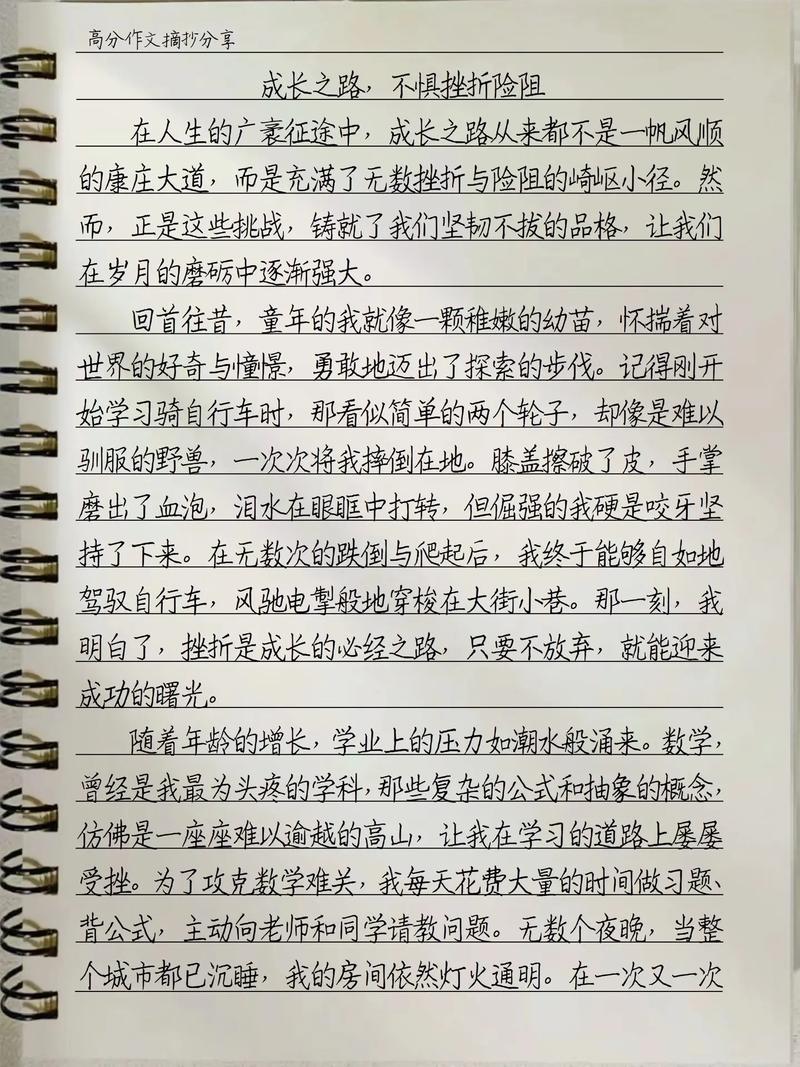 高分作文摘抄分享
成长之路，不惧挫折险阻
在人生的广袤征途中，成长之路从来都不是一帆风顺
的康庄大道，而是充满了无数挫折与险阻的崎岖小径。然
而，正是这些挑战，铸就了我们坚韧不拔的品格，让我们
在岁月的磨砺中逐渐强大。
回首往昔，童年的我就像一颗稚嫩的幼苗，怀揣着对
世界的好奇与憧憬，勇敢地迈出了探索的步伐。记得刚开
始学习骑自行车时，那看似简单的两个轮子，却像是难以
驯服的野兽，一次次将我摔倒在地。膝盖擦破了皮，手掌
磨出了血泡，泪水在眼眶中打转，但倔强的我硬是咬牙坚
持了下来。在无数次的跌倒与爬起后，我终于能够自如地
驾驭自行车，风驰电掣般地穿梭在大街小巷。那一刻，我
明白了，挫折是成长的必经之路，只要不放弃，就能迎来
成功的曙光。
随着年龄的增长，学业上的压力如潮水般涌来。数学，
曾经是我最为头疼的学科，那些复杂的公式和抽象的概念，
仿佛是一座座难以逾越的高山，让我在学习的道路上屡屡
受挫。为了攻克数学难关，我每天花费大量的时间做习题、
背公式，主动向老师和同学请教问题。无数个夜晚，当整
个城市都已沉睡，我的房间依然灯火通明。在一次又一次